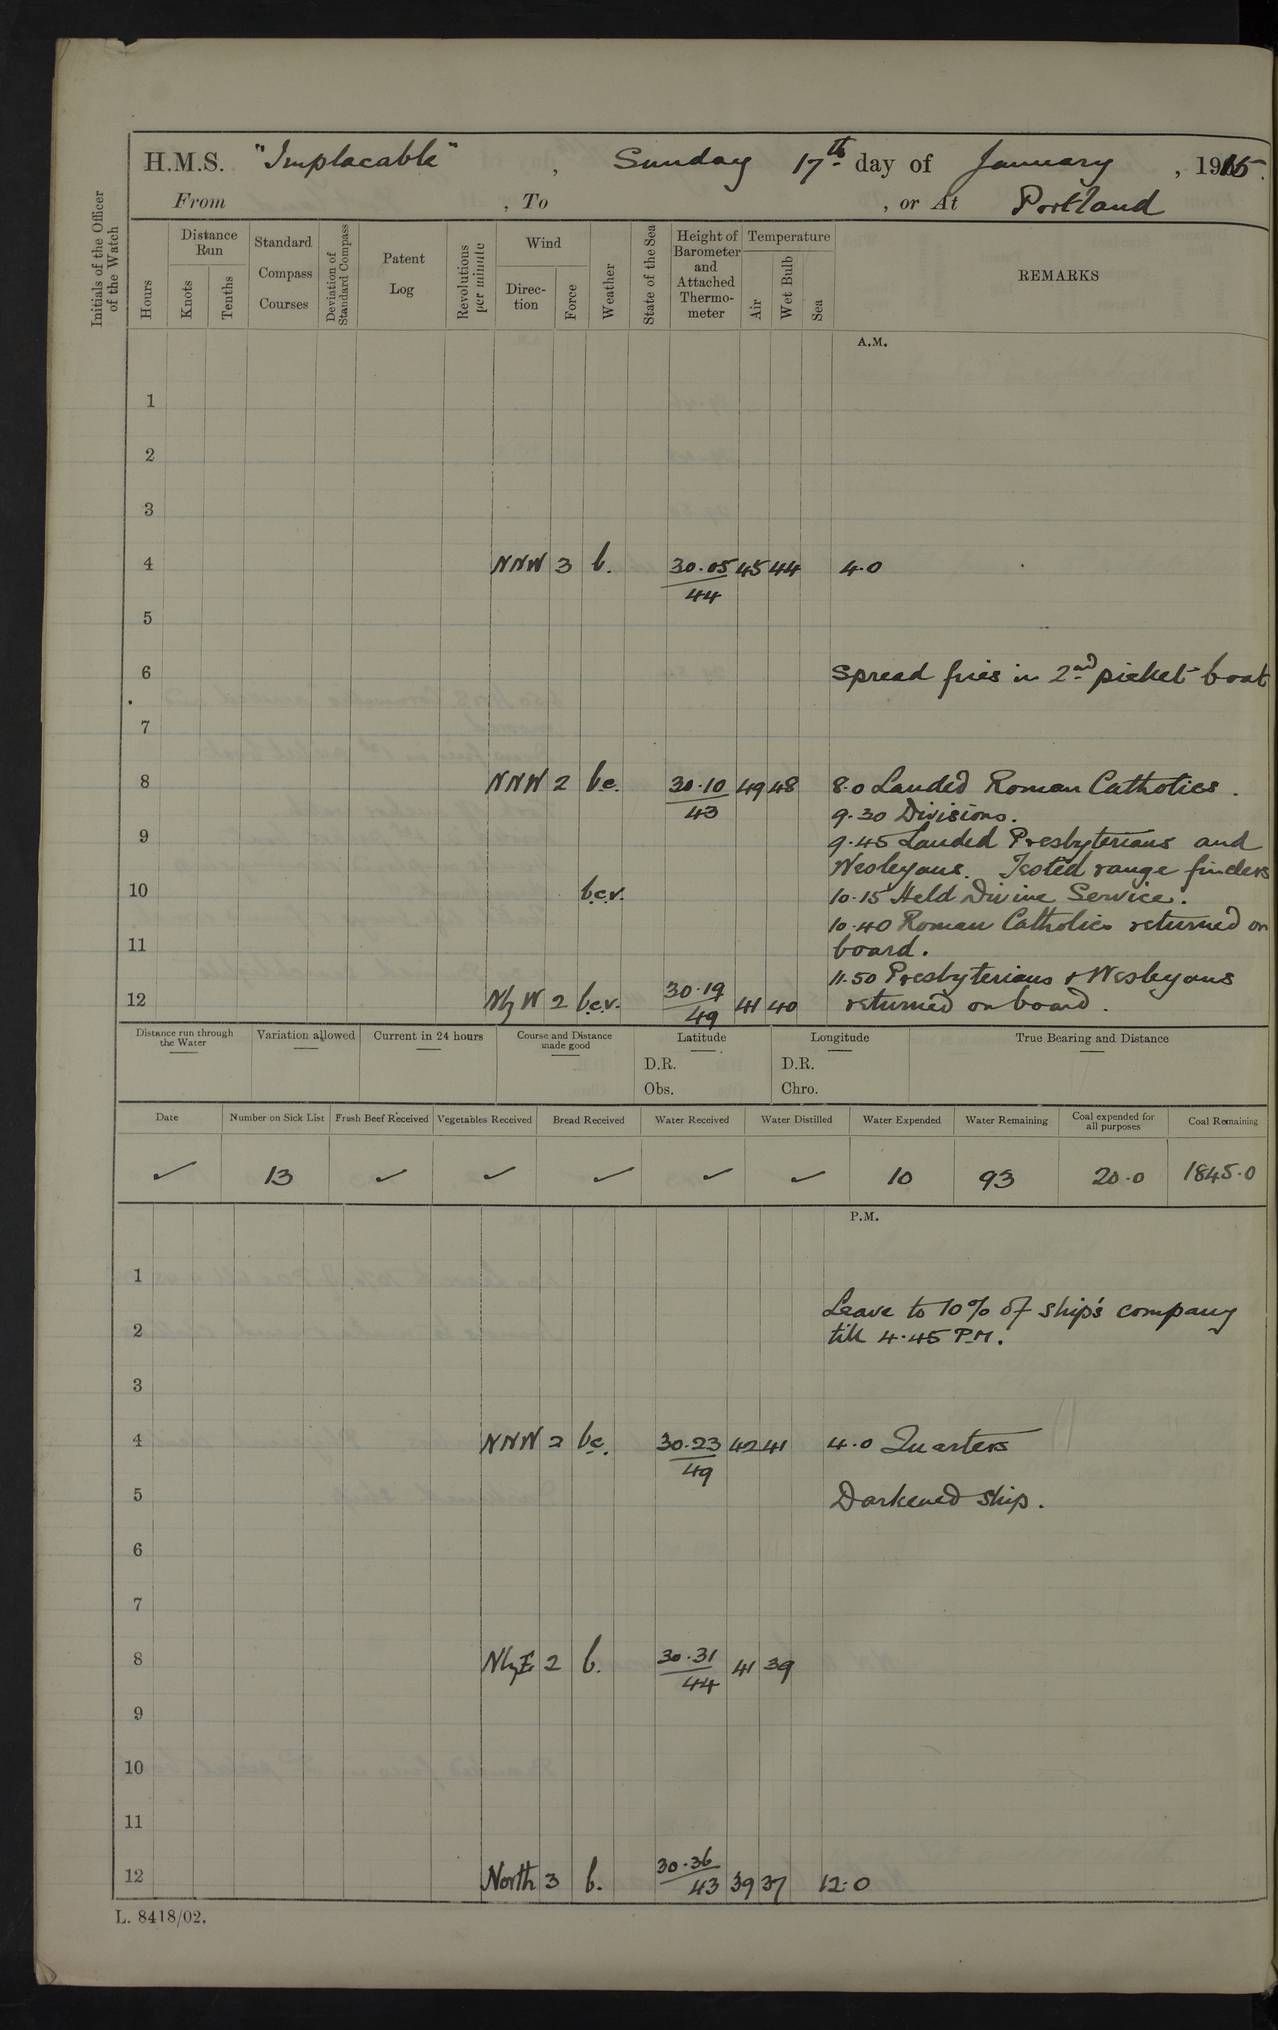 H.M.S. "Implacable", Sunday 17th day of January, 1915.
From , To , or At Portland
Initials of the Officer of the Watch
Hours
Distance Run
Knots
Tenths
Standard Compass Courses
Deviation of Standard Compass
Patent Log
Revolutions per minute
Wind
Direction
Force
Weather
State of the Sea
Height of Barometer and Attached Thermometer
Temperature
Air
Wet Bulb
Sea
REMARKS
A.M.
1
2
3
4 NNW 3 b. 30.05/44 45 44 4.0
5
6 Spread fires in 2nd picket boat
7
8 NNW 2 bc. 30.10/43 49 48 8.0 Landed Roman Catholics.
9.30 Divisions.
9 9.45 Landed Presbyterians and
Wesleyans. Tested range finders
10 b.c.v. 10.15 Held Divine Service.
10.40 Roman Catholics returned on
11 board.
11.50 Presbyterians & Wesleyans
12 NbyW 2 b.c.v. 30.19/49 41 40 returned on board.
Distance run through the Water
Variation allowed
Current in 24 hours
Course and Distance made good
Latitude
D.R.
Obs.
Longitude
D.R.
Chro.
True Bearing and Distance
Date Number on Sick List Fresh Beef Received Vegetables Received Bread Received Water Received Water Distilled Water Expended Water Remaining Coal expended for all purposes Coal Remaining
✓ 13 ✓ ✓ ✓ ✓ ✓ 10 93 20.0 1845.0
P.M.
1
Leave to 10% of ship's company
2 till 4.45 P.M.
3
4 NNW 2 bc. 30.23/49 42 41 4.0 Quarters
5 Darkened ship.
6
7
8 NbyE 2 b. 30.31/44 41 39
9
10
11
12 North 3 b. 30.36/43 39 37 12.0
L. 8418/02.